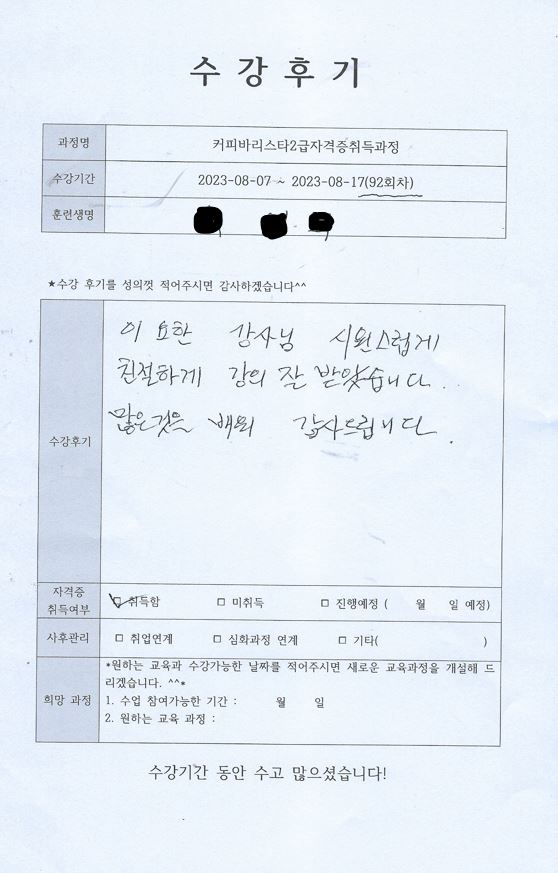 수 강 후 기
과정명 커피바리스타2급자격증취득과정
수강기간 2023-08-07 ~ 2023-08-17(92회차)
훈련생명
★수강 후기를 성의껏 적어주시면 감사하겠습니다^^
수강후기
이 요한 강사님 시원스럽게
친절하게 강의 잘 받았습니다.
많은것을 배워 감사드립니다.
자격증
취득여부 ☑ 취득함 □ 미취득 □ 진행예정 ( 월 일 예정)
사후관리 □ 취업연계 □ 심화과정 연계 □ 기타( )
희망 과정
*원하는 교육과 수강가능한 날짜를 적어주시면 새로운 교육과정을 개설해 드
리겠습니다. ^^*
1. 수업 참여가능한 기간 : 월 일
2. 원하는 교육 과정 :
수강기간 동안 수고 많으셨습니다!